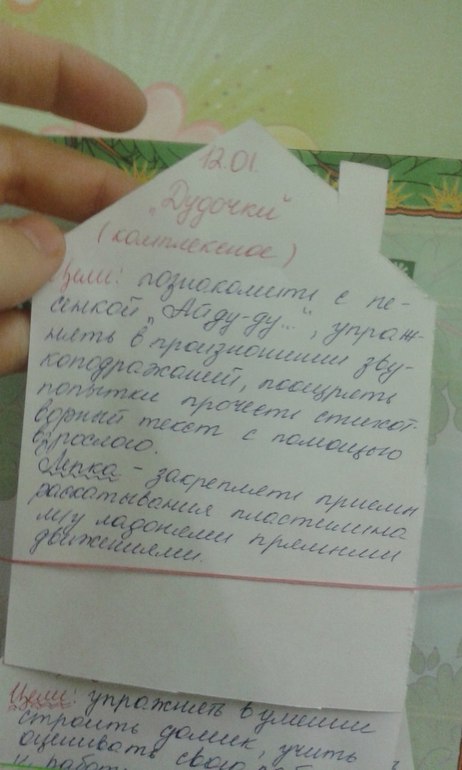 12.01.
"Дудочки"
(комплексное)
Цели: познакомить с пе-
сенкой "Ай ду-ду...", упраж-
нять в произношении зву-
коподражаний, поощрять
попытки прочесть стихот-
ворный текст с помощью
взрослого.
Лепка - закреплять приемы
раскатывания пластилина
м/у ладонями прямыми
движениями.
Цели: упражнять в умении
строить домик, учить
оценивать свою